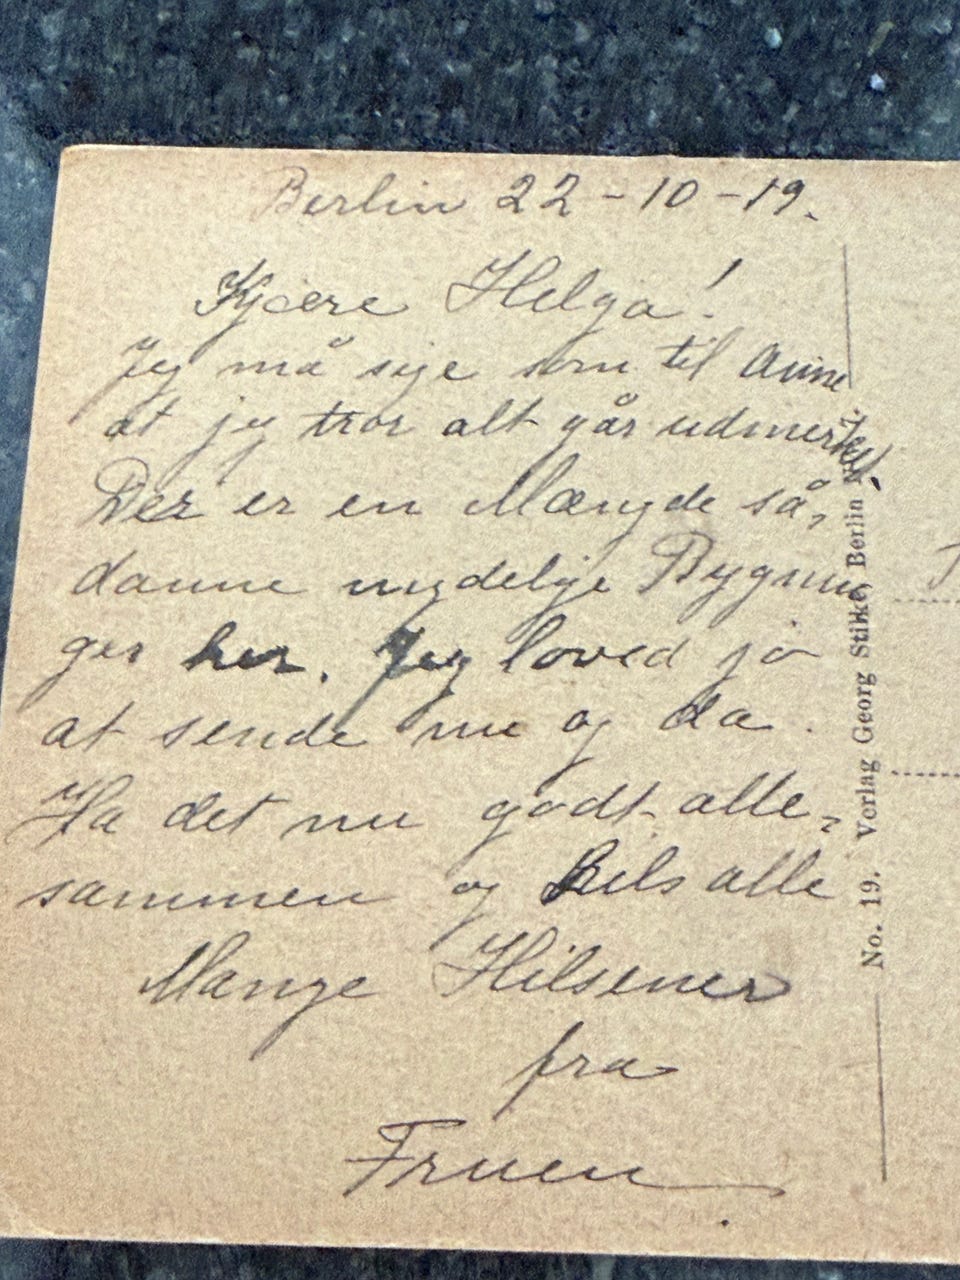 Berlin 22-10-19.
Kjære Helga!
Jeg må sige som til Anne
at jeg tror alt går udmerket.
Der er en Mængde så,
danne nydelige Bygnin
ger her. Jeg loved jo
at sende nu og da.
Ha det nu godt alle,
sammen og hils alle
Mange Hilsener
fra
Fruen
No. 19. Verlag Georg Stilke, Berlin